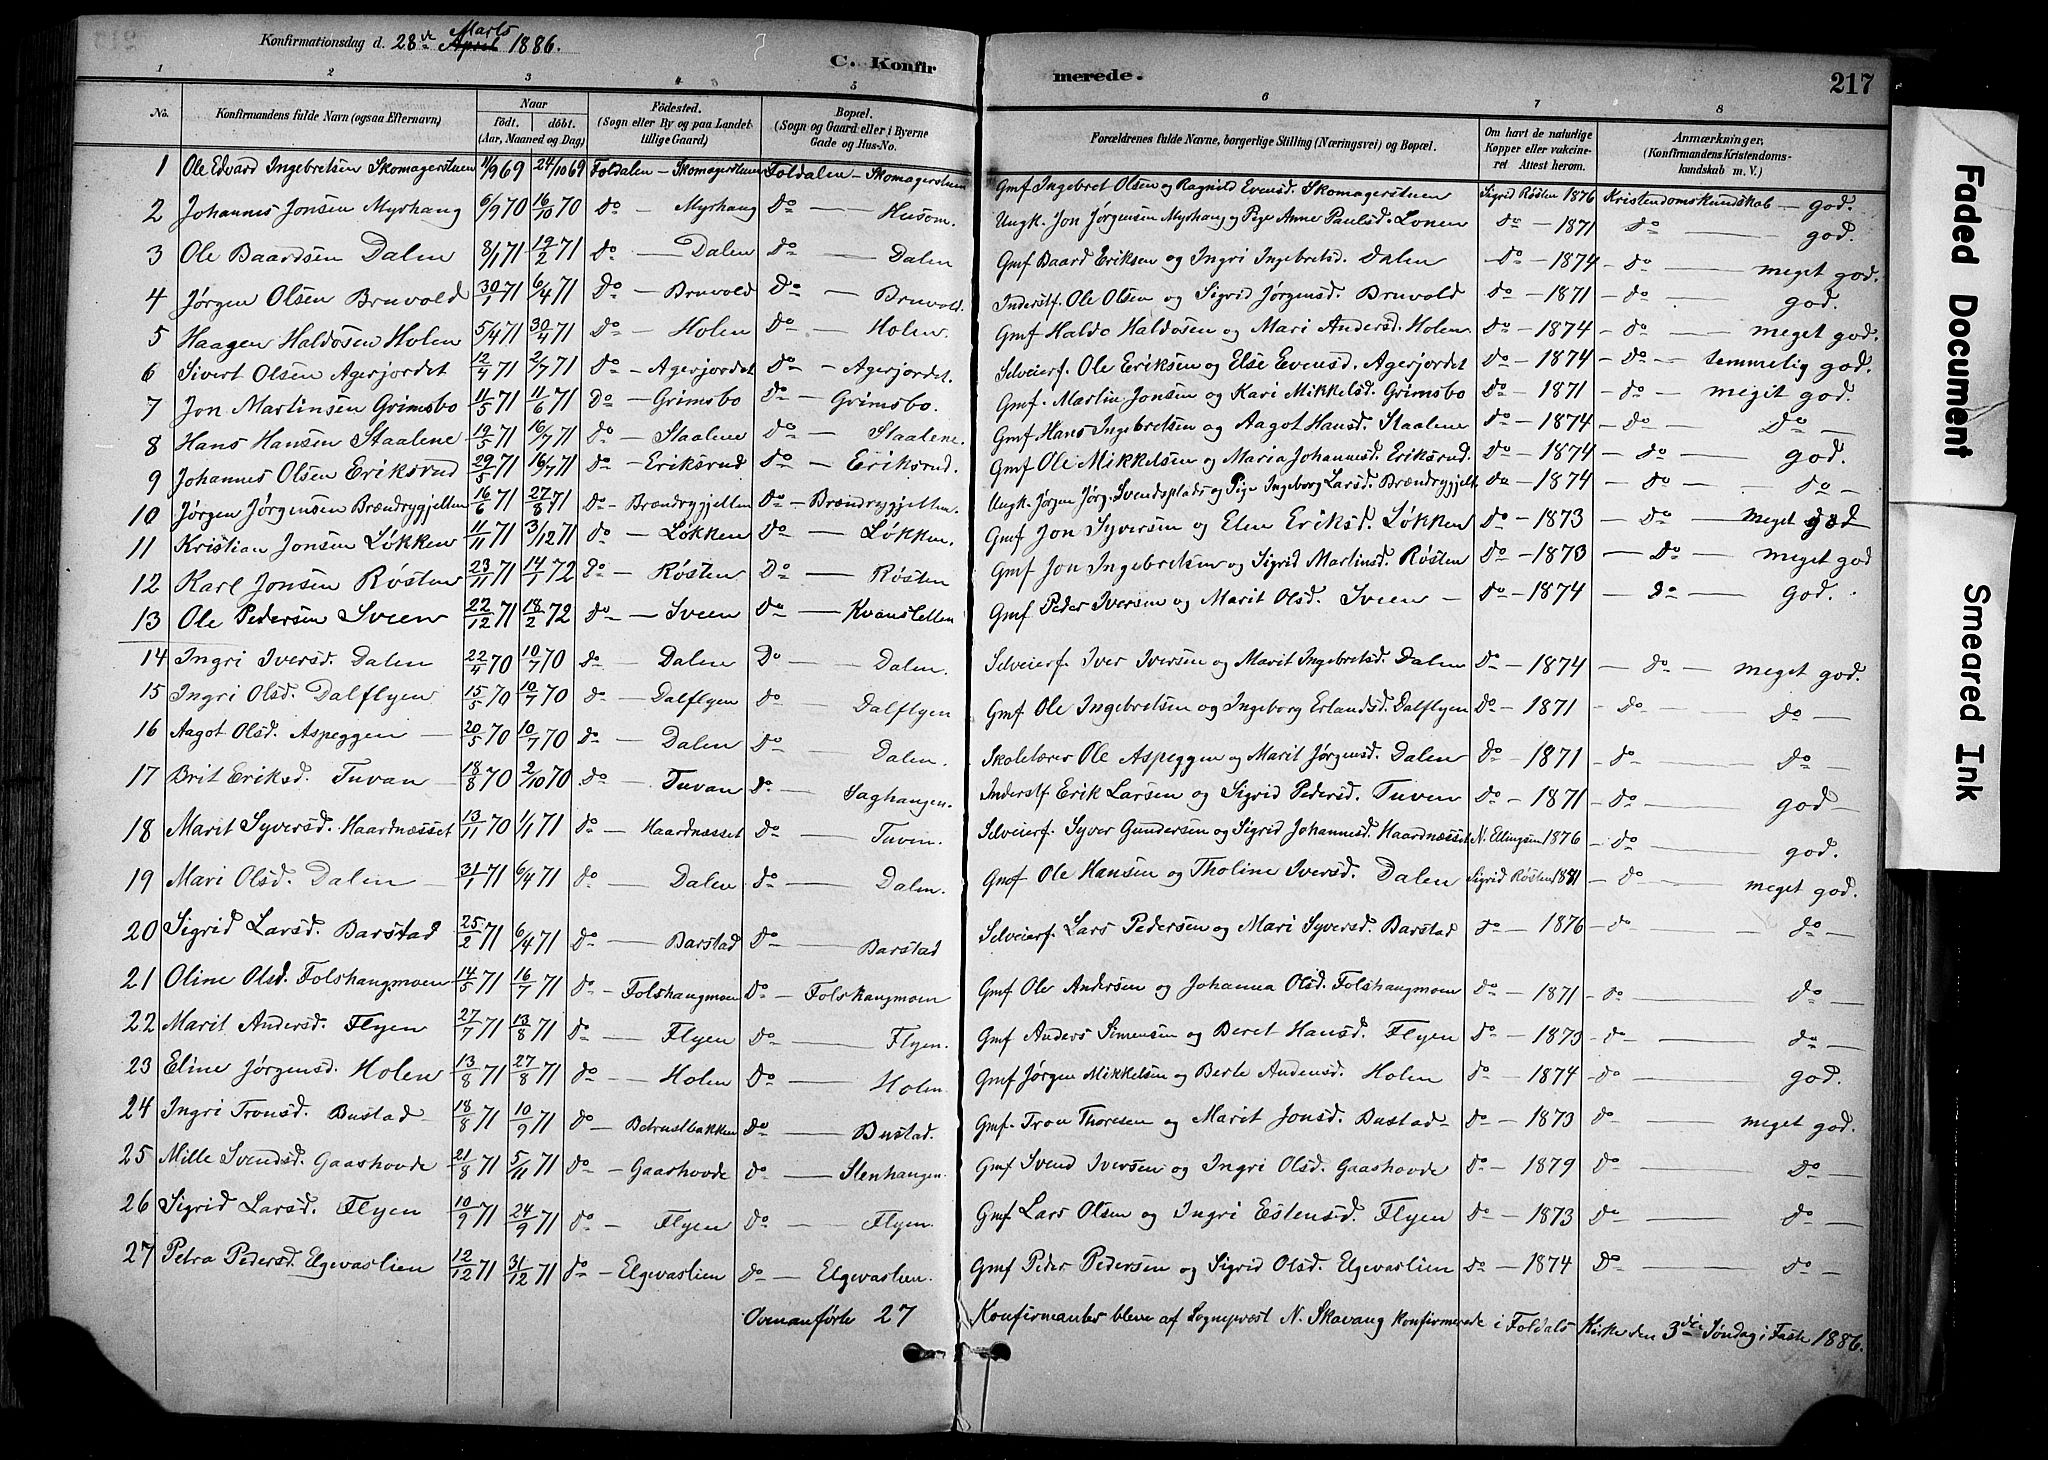 Konfirmationsdag d. 28de April Marts 1886.
C. Konfirmerede.
217
1 2 3 4 5 6 7 8
No.
Konfirmandens fulde Navn (ogsaa Efternavn)
Naar
födt. döbt.
(Aar, Maaned og Dag)
Födested.
(Sogn eller By og paa Landet tillige Gaard)
Bopæl.
(Sogn og Gaard eller i Byerne Gade og Hus-No.
Forældrenes fulde Navne, borgerlige Stilling (Næringsvei) og Bopæl.
Om havt de naturlige Kopper eller vakcineret Attest herom.
Anmærkninger,
(Konfirmandens Kristendomskundskab m. V.)
1 Ole Edvard Ingebretsen Skomagerstuen 11/9 69 24/10 69 Foldalen – Skomagerstuen Foldalen – Skomagerstuen Gmf Ingebret Olsen og Ragnild Evensd. Skomagerstuen Sigrid Røsten 1876 Kristendomskundskab – god.
2 Johannes Jonsen Myrhaug 6/9 70 16/10 70 Do – Myrhaug Do – Husom. Ungk. Jon Jørgensen Myrhaug og Pige Anne Paulsd. Lonen Do – 1871 Do – god.
3 Ole Baardsen Dalen 8/1 71 19/2 71 Do – Dalen Do – Dalen Gmf Baard Eriksen og Ingri Ingebretsd. Dalen Do – 1874 – Do – meget god.
4 Jørgen Olsen Bruvold 30/1 71 6/4 71 Do – Bruvold Do – Bruvold. Inderstf. Ole Olsen og Sigrid Jørgensd. Bruvold Do – 1871 – Do – god.
5 Haagen Haldosen Holen 5/4 71 30/4 71 Do – Holen Do – Holen. Gmf Haldo Haldosen og Mari Andersd. Holen Do – 1874 – Do – meget god.
6 Sivert Olsen Agerjordet 12/4 71 2/7 71 Do – Agerjordet Do – Agerjordet. Selveierf. Ole Eriksen og Else Evensd. Agerjordet Do – 1874 – Do – temmelig god.
7 Jon Martinsen Grimsbo 11/5 71 11/6 71 Do – Grimsbo Do – Grimsbo. Gmf. Martin Jonsen og Kari Mikkelsd. Grimsbo Do – 1871 – Do – meget god.
8 Hans Hansen Staalene 19/5 71 16/7 71 Do – Staalene Do – Staalene. Gmf Hans Ingebretsen og Aagot Hansd. Staalene Do – 1874 – Do – Do –
9 Johannes Olsen Eriksrud 29/5 71 16/7 71 Do – Eriksrud Do – Eriksrud. Gmf Ole Mikkelsen og Maria Johannesd. Eriksrud. Do – 1874 – Do – god.
10 Jørgen Jørgensen Brændryggjelten 16/6 71 27/8 71 Do – Brændryggjelten Do – Brændryggjelten. Ungk. Jørgen Jørg. Svendsplads og Pige Ingeborg Larsd. Brændryggjelt. Do – 1874 – Do – Do –
11 Kristian Jonsen Løkken 11/11 71 3/12 71 Do – Løkken Do – Løkken. Gmf Jon Syversen og Elen Eriksd. Løkken Do – 1873 – Do – meget god
12 Karl Jonsen Røsten 23/11 71 14/1 72 Do – Røsten Do – Røsten Gmf Jon Ingebretsen og Sigrid Martinsd. Røsten Do – 1873 – Do – meget god
13 Ole Pedersen Sveen 22/12 71 18/2 72 Do – Sveen Do – Kvansletten Gmf Peder Iversen og Marit Olsd. Sveen – Do – 1874 – Do – god.
14 Ingri Iversd. Dalen 22/4 70 10/7 70 Do – Dalen Do – Dalen. Selveierf. Iver Iversen og Marit Ingebretsd. Dalen Do – 1874 – Do – meget god.
15 Ingri Olsd. Dalflyen 15/5 70 10/7 70 Do – Dalflyen Do – Dalflyen Gmf Ole Ingebretsen og Ingeborg Erlandsd. Dalflyen Do – 1871 – Do – Do –
16 Aagot Olsd. Aspeggen – 20/5 70 10/7 70 Do – Dalen Do – Dalen. Skolelærer Ole Aspeggen og Marit Jørgensd. Dalen Do – 1871 – Do – Do –
17 Brit Eriksd. Tuvan – 18/8 70 2/10 70 Do – Tuvan Do – Saghaugen. Inderstf Erik Larsen og Sigrid Pedersd. Tuven Do – 1871 – Do – god –
18 Marit Syversd. Haardnæsset 13/11 70 1/1 71 Do – Haardnæsset Do – Tuven. Selveierf. Syver Gundersen og Sigrid Johannesd. Haardnæsset N. Ellingsen 1876 – Do – god.
19 Mari Olsd. Dalen – 31/1 71 6/4 71 Do – Dalen Do – Dalen. Gmf Ole Hansen og Tholine Iversd. Dalen Sigrid Røsten 1881 – Do – meget god.
20 Sigrid Larsd. Barstad 25/2 71 6/4 71 Do – Barstad Do – Barstad Selveierf. Lars Pedersen og Mari Syversd. Barstad Do – 1876 – Do – Do –
21 Oline Olsd. Folshaugmoen 14/5 71 16/7 71 Do – Folshaugmoen Do – Folshaugmoen Gmf Ole Andersen og Johanna Olsd. Folshaugmoen Do – 1871 – Do – Do –
22 Marit Andersd. Flyen 27/7 71 13/8 71 Do – Flyen Do – Flyen. Gmf Anders Simensen og Beret Hansd. Flyen Do – 1873 – Do – Do –
23 Eline Jørgensd. Holen 13/8 71 27/8 71 Do – Holen Do – Holen Gmf Jørgen Mikkelsen og Berte Andersd. Holen Do – 1874 – Do – god.
24 Ingri Tronsd. Bustad – 18/8 71 10/9 71 Do – Do – Bustad. Gmf. Tron Thoresen og Marit Jonsd. Bustad – Do – 1873 Do – meget god.
25 Mille Svendsd. Gaashovde 21/8 71 5/11 71 Do – Gaashovde Do – Stenhaugen. Gmf Svend Iversen og Ingri Olsd. Gaashovde Do – 1879 Do – Do –
26 Sigrid Larsd. Flyen 10/9 71 24/9 71 Do – Flyen Do – Flyen. Gmf Lars Olsen og Ingri Estensd. Flyen Do – 1873 Do – Do –
27 Petra Pedersd. Elgevaslien 12/12 71 31/12 71 Do – Elgevaslien Do – Elgevaslien. Gmf Peder Pedersen og Sigrid Olsd. Elgevaslien Do – 1874 Do – Do –
Ovenanførte 27 Konfirmanter bleve af Sogneprest N. Skavang konfirmerede i Foldals Kirke den 3die Søndag i Faste 1886.
Faded Document
Smeared Ink